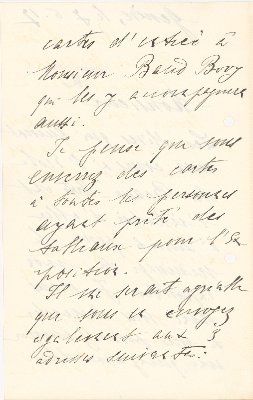 cartes d'entrée à
Monsieur Baud Bovy
qui les y accompagnera
aussi.
Je pense que vous
enverrez des cartes
à toutes les personnes
ayant prêté des
tableaux pour l'Ex
position.
Il me serait agréable
que vous en envoyez
également aux 3
adresses suivantes: